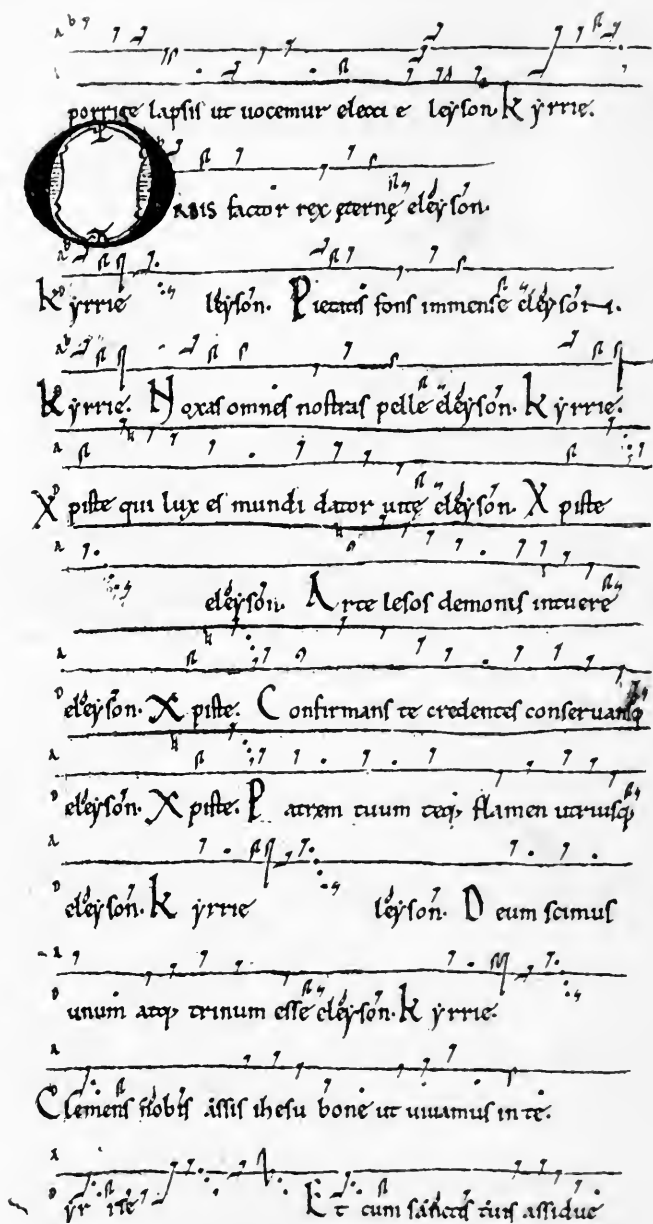 porrige lapsis ut uocemur elexci e leyson. Kyrrie.
ORBIS factor rex ęternę eleyson.
Kyrrie leyson. Pietatis fons immense eleyson.
Kyrrie. Noxas omnes nostras pelle eleyson. Kyrrie.
Xpiste qui lux es mundi dator uitę eleyson. Xpiste
eleyson. Arte lesos demonis intuere
eleyson. Xpiste. Confirmans te credentes conseruansq;
eleyson. Xpiste. Patrem tuum teq; flamen utriusq;
eleyson. Kyrrie leyson. Deum scimus
unum atq; trinum esse eleyson. Kyrrie.
Clemens nobis assis ihesu bone ut uiuamus in te.
Et cum sanctis tuis assidue